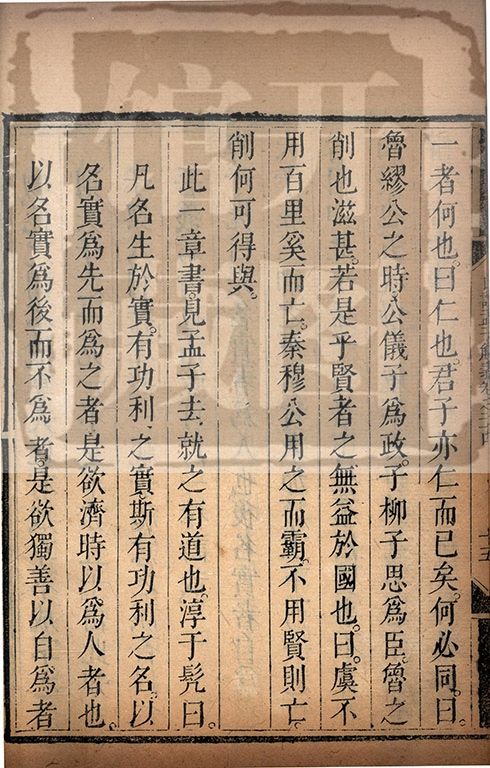 一者何也。曰仁也。君子亦仁而已矣。何必同。曰
魯繆公之時。公儀子爲政。子柳子思爲臣。魯之
削也滋甚。若是乎賢者之無益於國也。曰。虞不
用百里奚而亡。秦穆公用之而霸。不用賢則亡。
削何可得與。
此一章書。見孟子去就之有道也。淳于髡曰。
凡名生於實。有功利之實。斯有功利之名。以
名實爲先而爲之者。是欲濟時以爲人者也。
以名實爲後而不爲者。是欲獨善以自爲者